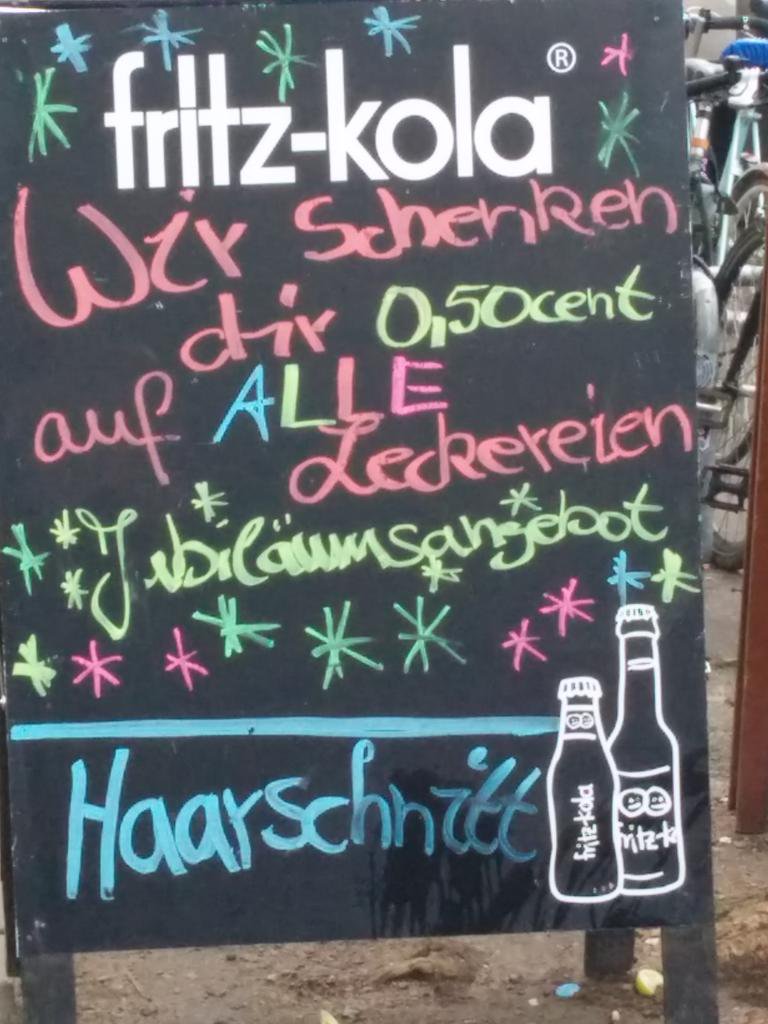 fritz-kola®
Wir schenken
dir 0,50cent
auf ALLE
Leckereien
Jubiläumsangebot
Haarschnitt
fritz-kola
fritz-k